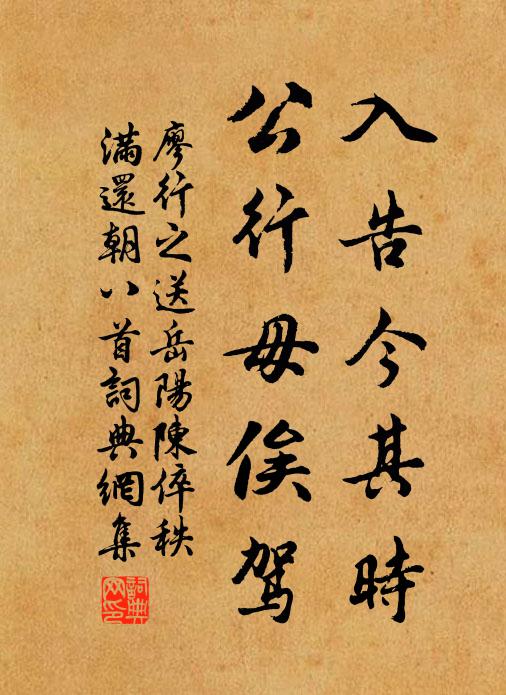 入告今其時
公行毋俟駕
廖行之送岳陽陳倅秩
滿還朝八首詞典網集
詞典網印